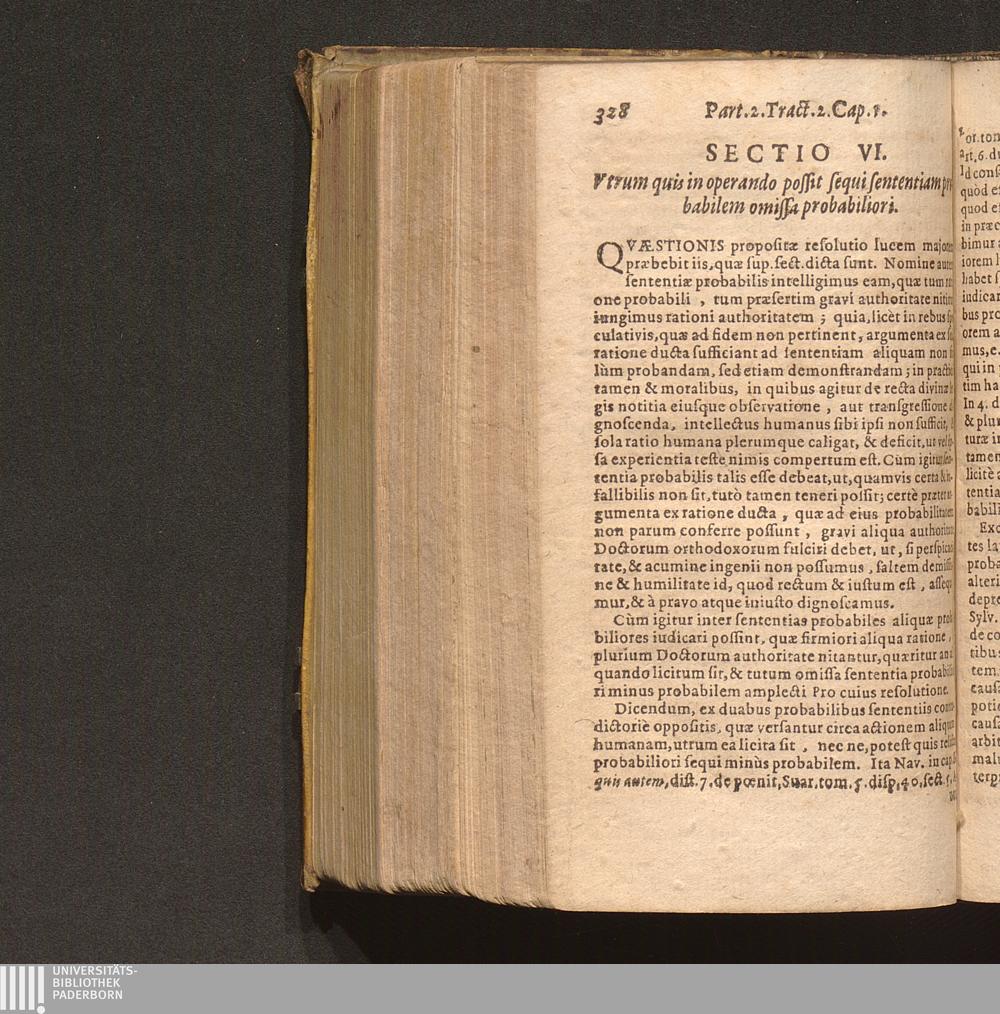 328 Part.2.Tract.2.Cap.1.
SECTIO VI.
Vtrum quis in operando possit sequi sententiam
babilem omissa probabiliori.
QVÆSTIONIS propositæ resolutio lucem
præbebit iis, quæ sup. sect. dicta sunt. Nomine
sententiæ probabilis intelligimus eam, quæ tum
one probabili , tum præsertim gravi authoritate
iungimus rationi authoritatem ; quia, licèt in rebus
culativis, quæ ad fidem non pertinent, argumenta ex
ratione ducta sufficiant ad sententiam aliquam non
lùm probandam, sed etiam demonstrandam ; in
tamen & moralibus, in quibus agitur de recta divinæ
gis notitia eiusque observatione , aut transgressione
gnoscenda, intellectus humanus sibi ipsi non sufficit,
sola ratio humana plerumque caligat, & deficit, ut vel
sa experientia teste nimis compertum est. Cùm igitur
tentia probabilis talis esse debeat, ut, quamvis certa &
fallibilis non sit, tutò tamen teneri possit; certè præter
gumenta ex ratione ducta , quæ ad eius
non parum conferre possunt , gravi aliqua
Doctorum orthodoxorum fulciri debet, ut , si
tate, & acumine ingenii non possumus , saltem
ne & humilitate id, quod rectum & iustum est ,
mur, & à pravo atque iniusto dignoscamus.
Cùm igitur inter sententias probabiles aliquæ
biliores iudicari possint, quæ firmiori aliqua ratione ,
plurium Doctorum authoritate nitantur, quæritur
quando licitum sit, & tutum omissa sententia
ri minus probabilem amplecti Pro cuius resolutione.
Dicendum, ex duabus probabilibus sententiis
dictoriè oppositis, quæ versantur circa actionem
humanam, utrum ea licita sit , nec ne, potest quis
probabiliori sequi minùs probabilem. Ita Nav. in cap.
quis autem, dist. 7. de pœnit, Suar. tom. 5. disp. 40. sect. 5.
or. tom
art. 6.
quòd
quod
in præc
bimur
iorem
habet
iudicar
bus pro
orem a
mus, e.
qui in
tim ha
In 4. d
& plur
turæ in
tamen
licitè
tentia
babili
Exc
tes la
proba
alteri
depre
Sylv.
de co
tibus
tem.
causa
potic
causa
arbit
malu
terg
UNIVERSITÄTS-
BIBLIOTHEK
PADERBORN